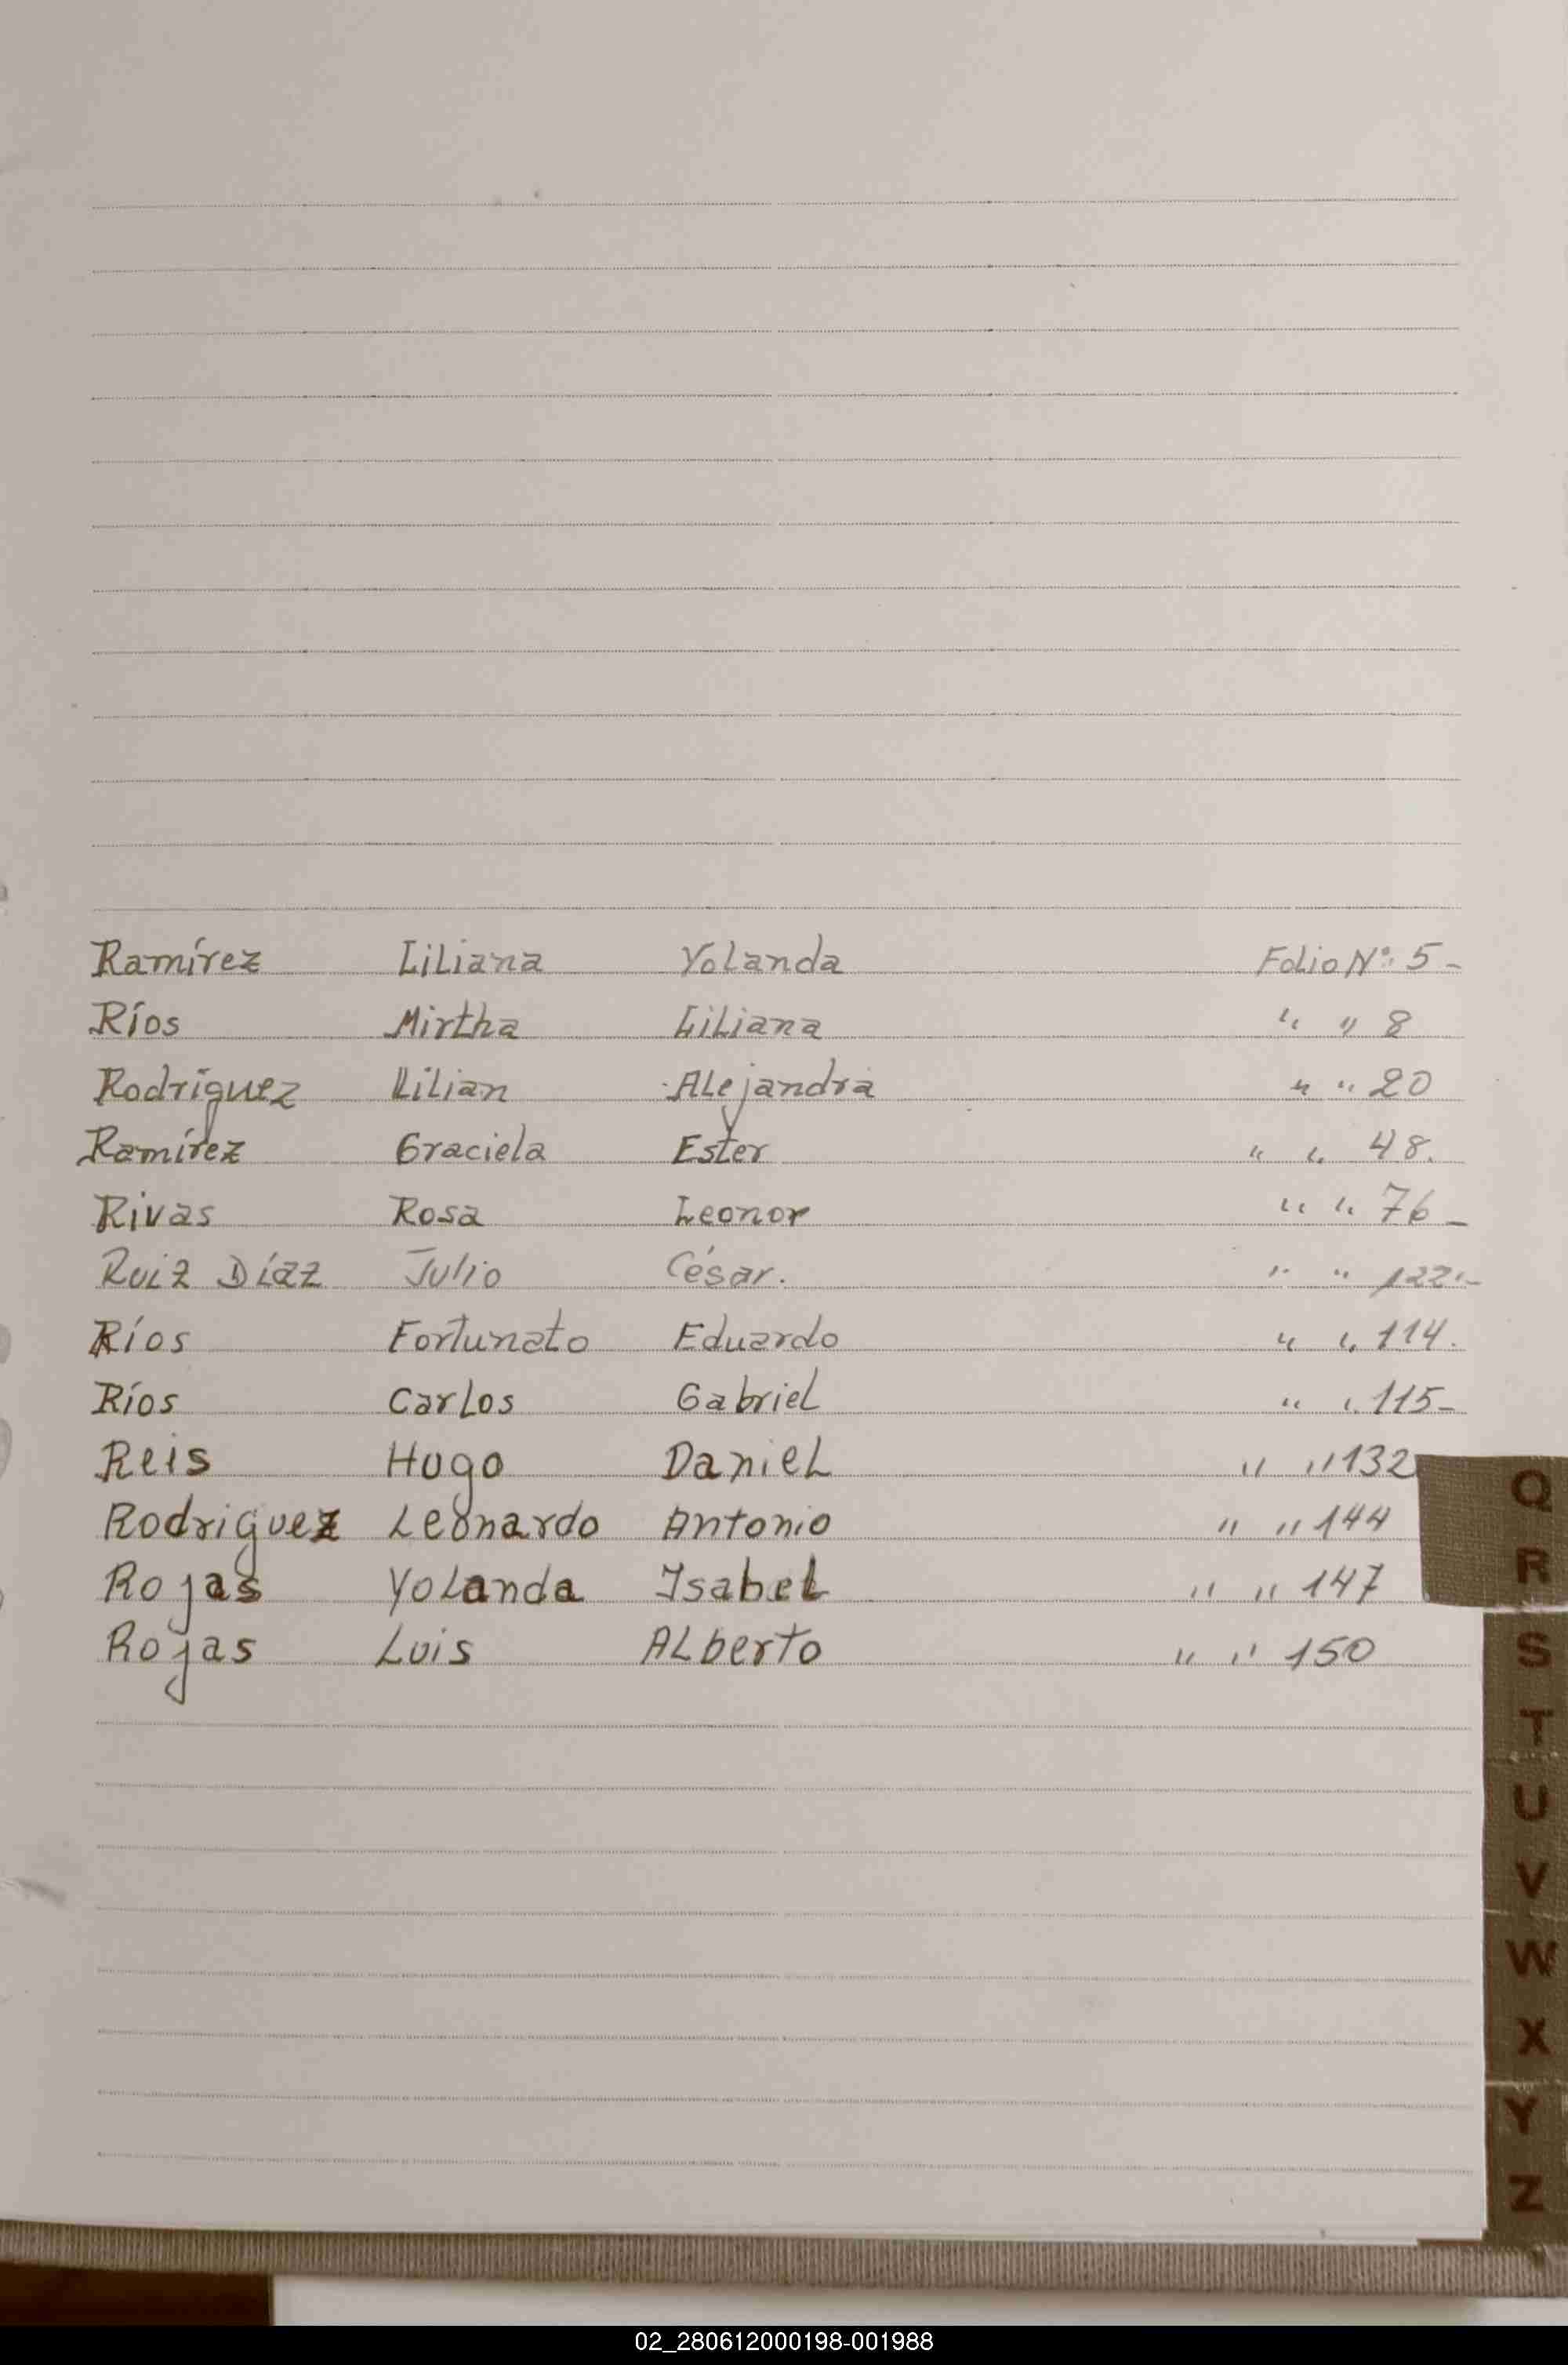 Ramírez Liliana Yolanda Folio Nº: 5-
Ríos Mirtha Liliana " " 8
Rodríguez Lilian Alejandra " " 20
Ramírez Graciela Ester " " 48.
Rivas Rosa Leonor " " 76-
Ruiz Díaz Julio César. " " 122.-
Ríos Fortunato Eduardo " " 114.
Ríos Carlos Gabriel " " 115-
Reis Hugo Daniel " " 132
Rodriguez Leonardo Antonio " " 144
Rojas Yolanda Isabel " " 147
Rojas Luis Alberto " " 150
Q
R
S
T
U
V
W
X
Y
Z
02_280612000198-001988